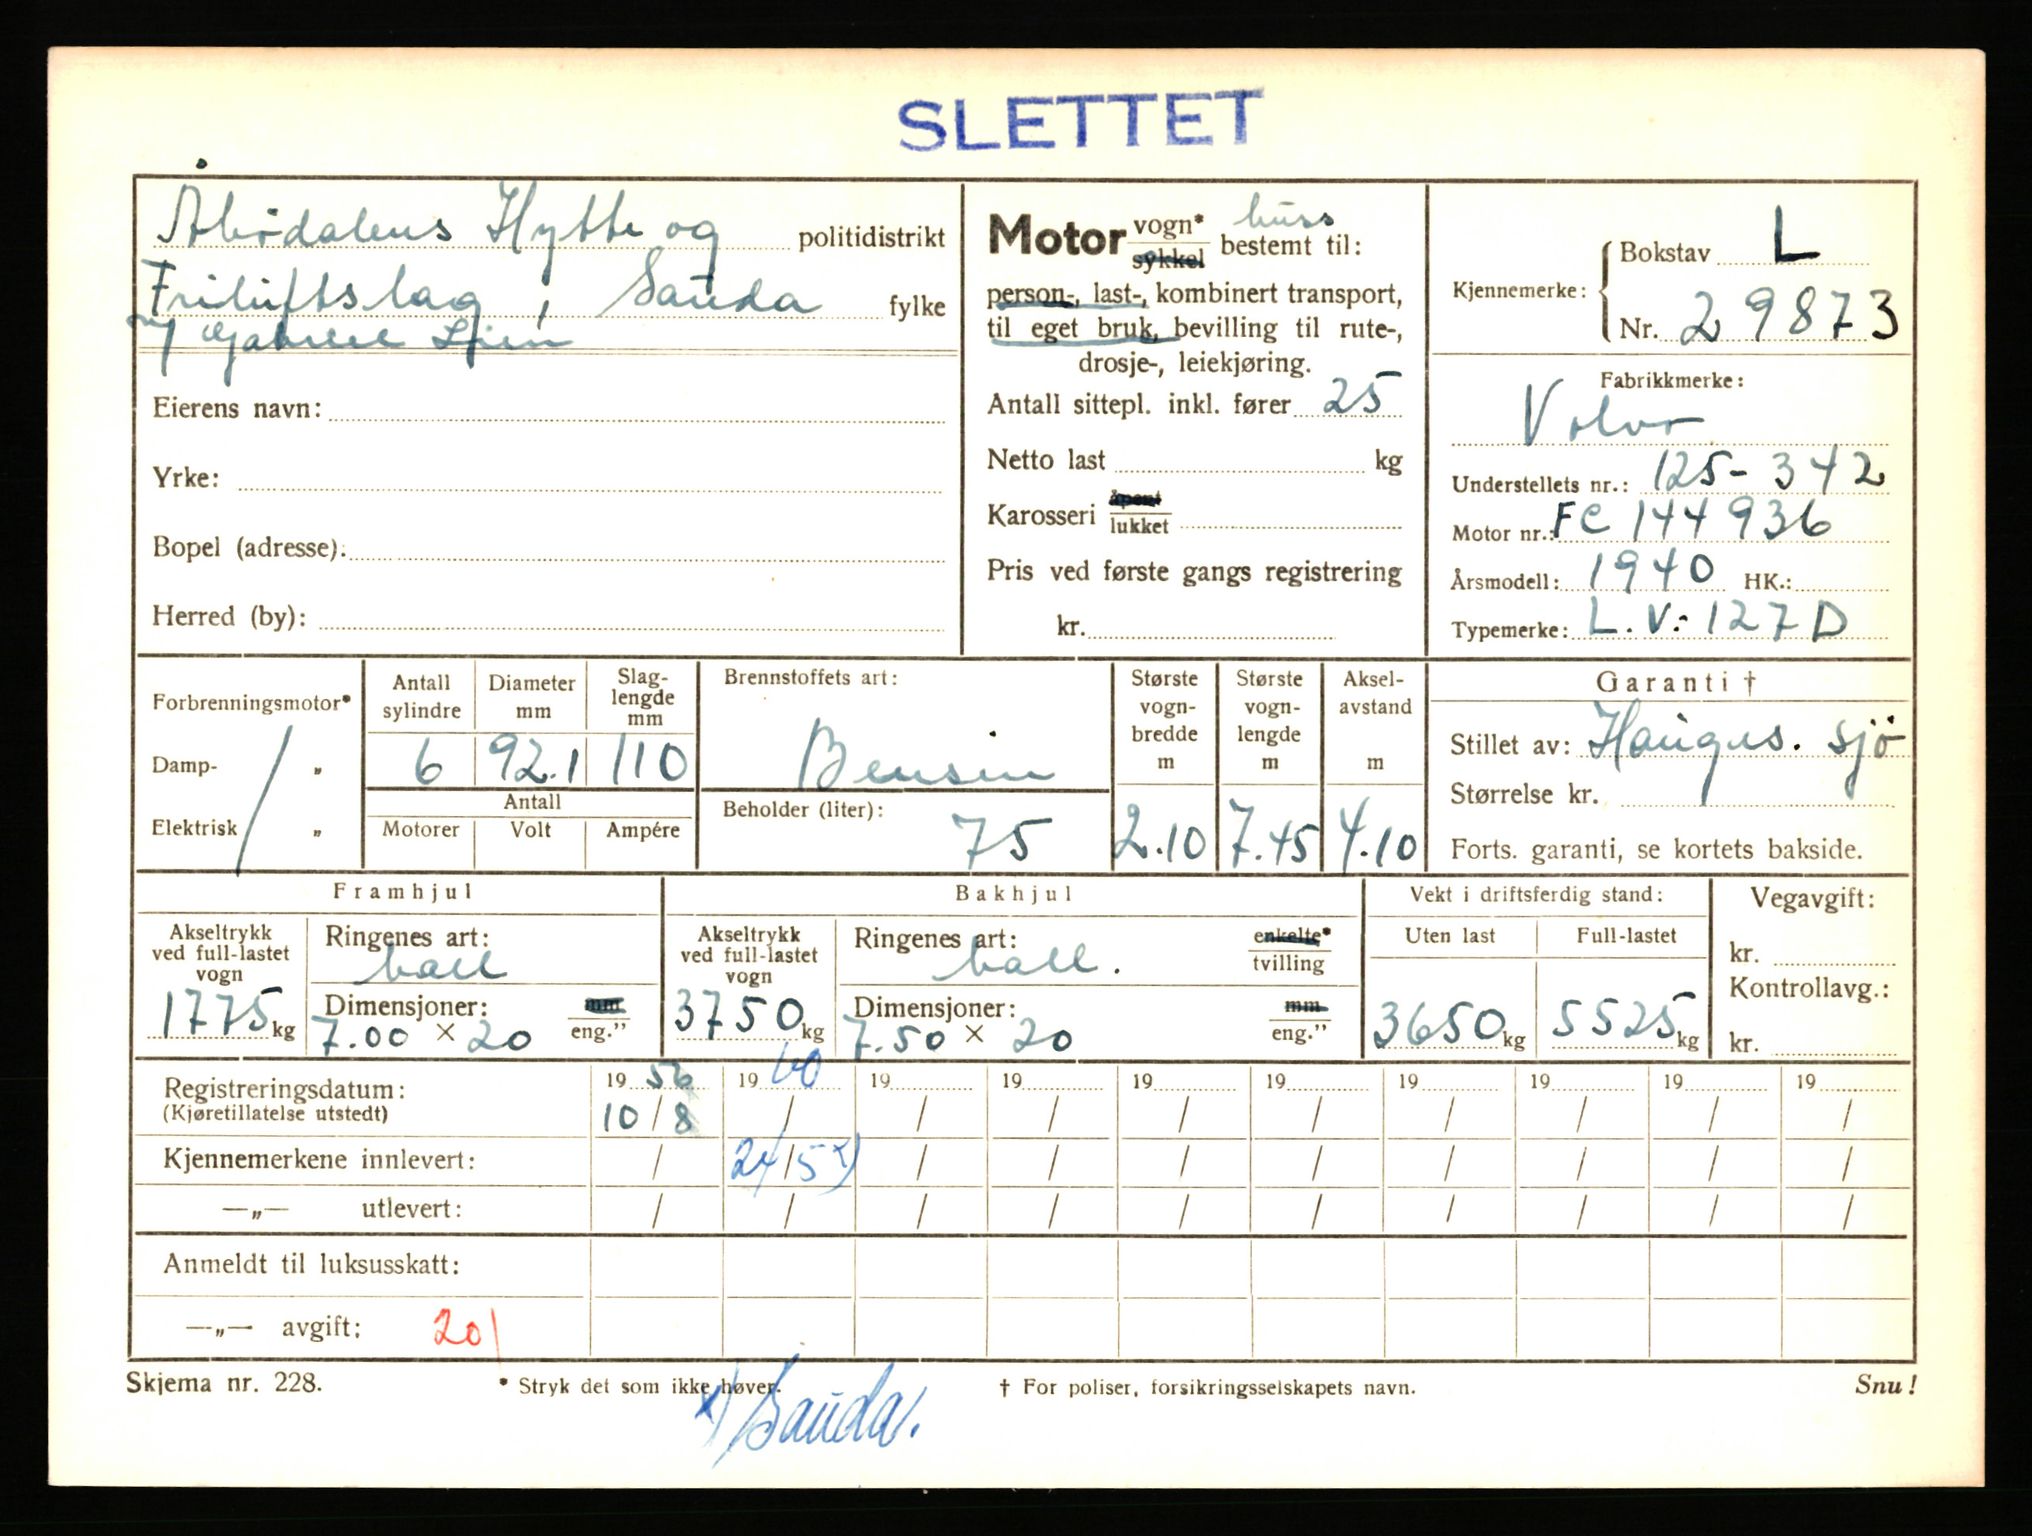 SLETTET
Åbødalens Hytte og politidistrikt
Friluftslag, Sauda fylke
v/ Gabriel Lien
Eierens navn:
Yrke:
Bopel (adresse):
Herred (by):
Motor vogn* buss
sykkel bestemt til:
person-, last-, kombinert transport,
til eget bruk, bevilling til rute-,
drosje-, leiekjøring.
Antall sittepl. inkl. fører 25
Netto last kg
Karosseri åpent
lukket
Pris ved første gangs registrering
kr.
Kjennemerke: Bokstav L
Nr. 29873
Fabrikkmerke:
Volvo
Understellets nr.: 125-342
Motor nr.: FC 144936
Årsmodell: 1940 HK.:
Typemerke: L.V.-127D
Forbrenningsmotor*
Damp- „
Elektrisk „
Antall sylindre
6
Diameter mm
92.1
Slag-lengde mm
110
Antall
Motorer Volt Ampére
Brennstoffets art:
Bensin
Beholder (liter):
75
Største vogn-bredde m
2.10
Største vogn-lengde m
7.45
Aksel-avstand m
4.10
Garanti †
Stillet av: Hauges. Sjø
Størrelse kr.
Forts. garanti, se kortets bakside.
Framhjul
Akseltrykk ved full-lastet vogn
1775 kg
Ringenes art:
ball
Dimensjoner: mm
7.00 × 20 eng.”
Bakhjul
Akseltrykk ved full-lastet vogn
3750 kg
Ringenes art: enkelte*
ball. tvilling
Dimensjoner: mm
7.50 × 20 eng.”
Vekt i driftsferdig stand:
Uten last Full-lastet
3650 kg 5525 kg
Vegavgift:
kr.
Kontrollavg.:
kr.
Registreringsdatum: 19 56 19 60 19 19 19 19 19 19 19 19
(Kjøretillatelse utstedt) 10/8 / / / / / / / / /
Kjennemerkene innlevert: / 24/5 x) / / / / / / / /
—„— utlevert: / / / / / / / / / /
Anmeldt til luksusskatt:
—„— avgift: 20/
Skjema nr. 228. * Stryk det som ikke høver. † For poliser, forsikringsselskapets navn. Snu!
x) Sauda.